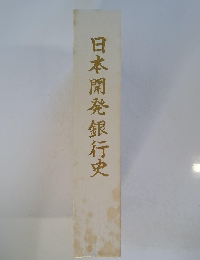 日本開発銀行史